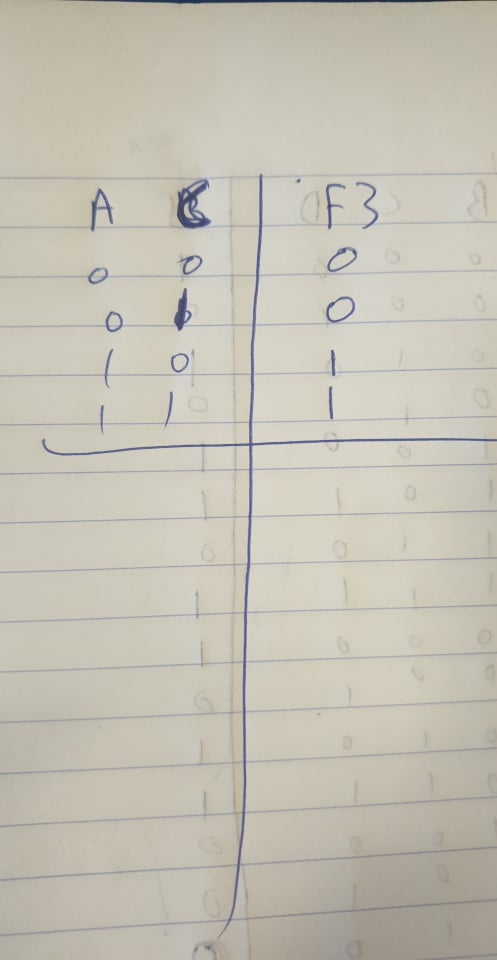 A C F3
0 0 0
0 1 0
1 0 1
1 1 1